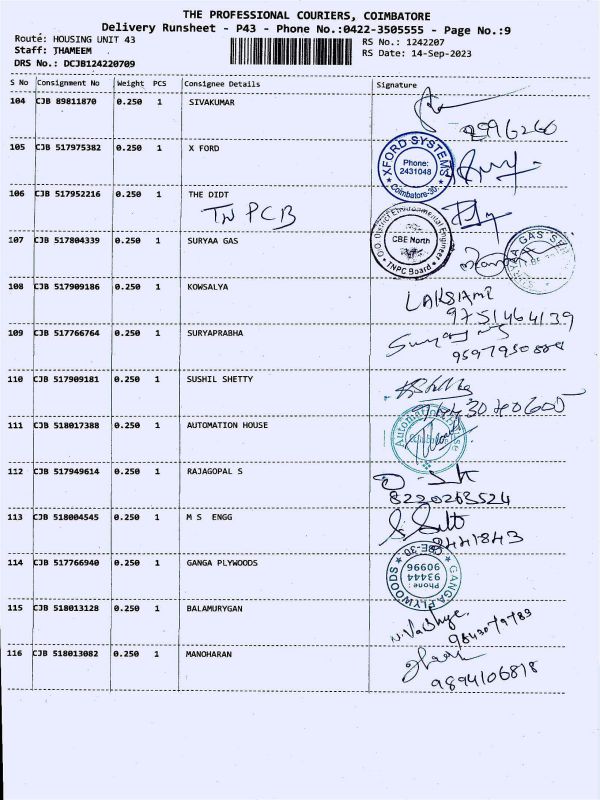 THE PROFESSIONAL COURIERS, COIMBATORE
Delivery Runsheet - P43 - Phone No.:0422-3505555 - Page No.:9
Route: HOUSING UNIT 43
RS No.: 1242207
Staff: THAMEEM
RS Date: 14-Sep-2023
DRS No.: DCJB124220709
S No Consignment No Weight PCS Consignee Details Signature
104 CJB 89811870 0.250 1 SIVAKUMAR
2996260
105 CJB 517975382 0.250 1 X FORD
XFORD SYSTEMS
Phone:
2431048
Coimbatore-30.
106 CJB 517952216 0.250 1 THE DIDT
TNPCB
O/O. District Environmental Engineer
CBE North
TNPC Board
107 CJB 517804339 0.250 1 SURYAA GAS
108 CJB 517909186 0.250 1 KOWSALYA
LAKSIAMI
9751464139
109 CJB 517766764 0.250 1 SURYAPRABHA
110 CJB 517909181 0.250 1 SUSHIL SHETTY
111 CJB 518017388 0.250 1 AUTOMATION HOUSE
Automation House
112 CJB 517949614 0.250 1 RAJAGOPAL S
8220263524
113 CJB 518004545 0.250 1 M S ENGG
114 CJB 517766940 0.250 1 GANGA PLYWOODS
GANGA PLYWOODS
CBE-30
Phone :
93444
90996
115 CJB 518013128 0.250 1 BALAMURYGAN
9843079783
116 CJB 518013082 0.250 1 MANOHARAN
9894106818